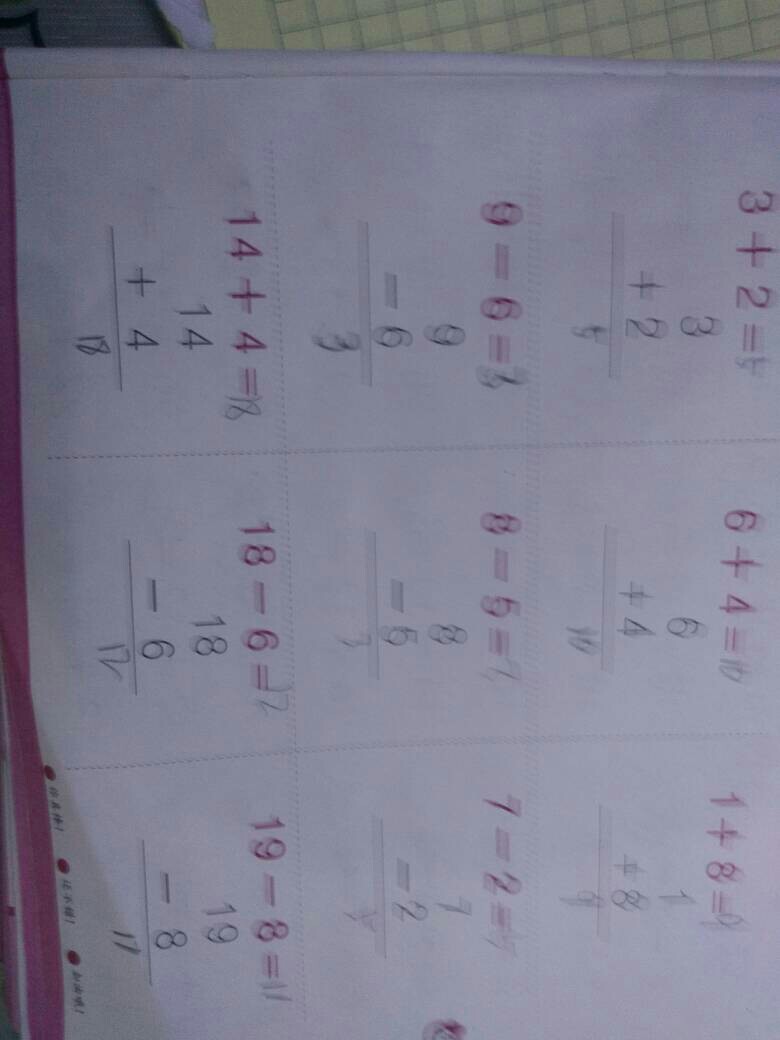 3+2=5
3
+2
5
6+4=10
6
+4
10
1+8=9
1
+8
9
9-6=3
9
-6
3
8-5=
8
-5
7-2=
7
-2
14+4=18
14
+4
18
18-6=12
18
-6
12
19-8=11
19
-8
11